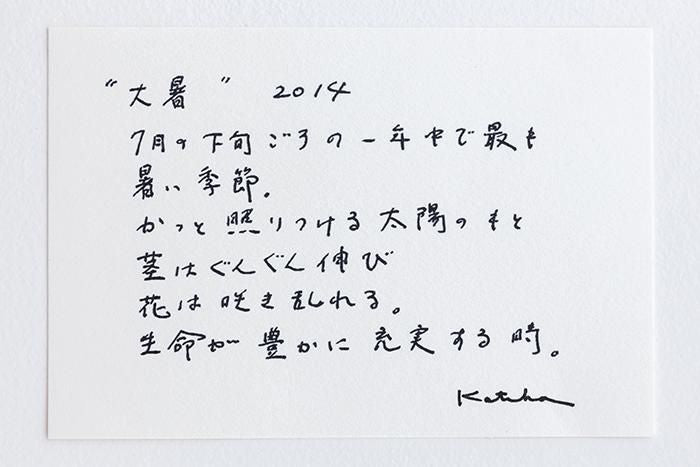 “大暑” 2014
7月の下旬ごろの一年中で最も
暑い季節。
かっと照りつける太陽のもと
茎はぐんぐん伸び
花は咲き乱れる。
生命が豊かに充実する時。